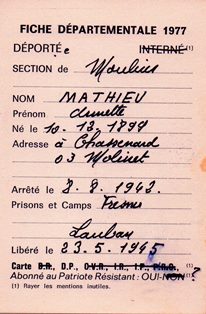 FICHE DÉPARTEMENTALE 1977
DÉPORTÉe INTERNÉ (1)
SECTION de Moulins
NOM MATHIEU
Prénom Annette
Né le 10.12.1899
Adresse à Chassenard
03 Molinet
Arrêté le 2.8.1942.
Prisons et Camps Fresnes
Lauban
Libéré le 23.5.1945
Carte D.R., D.P., O.V.R., I.R., I.P., P.R.O. (1)
Abonné au Patriote Résistant : OUI-NON (1) ?
(1) Rayer les mentions inutiles.